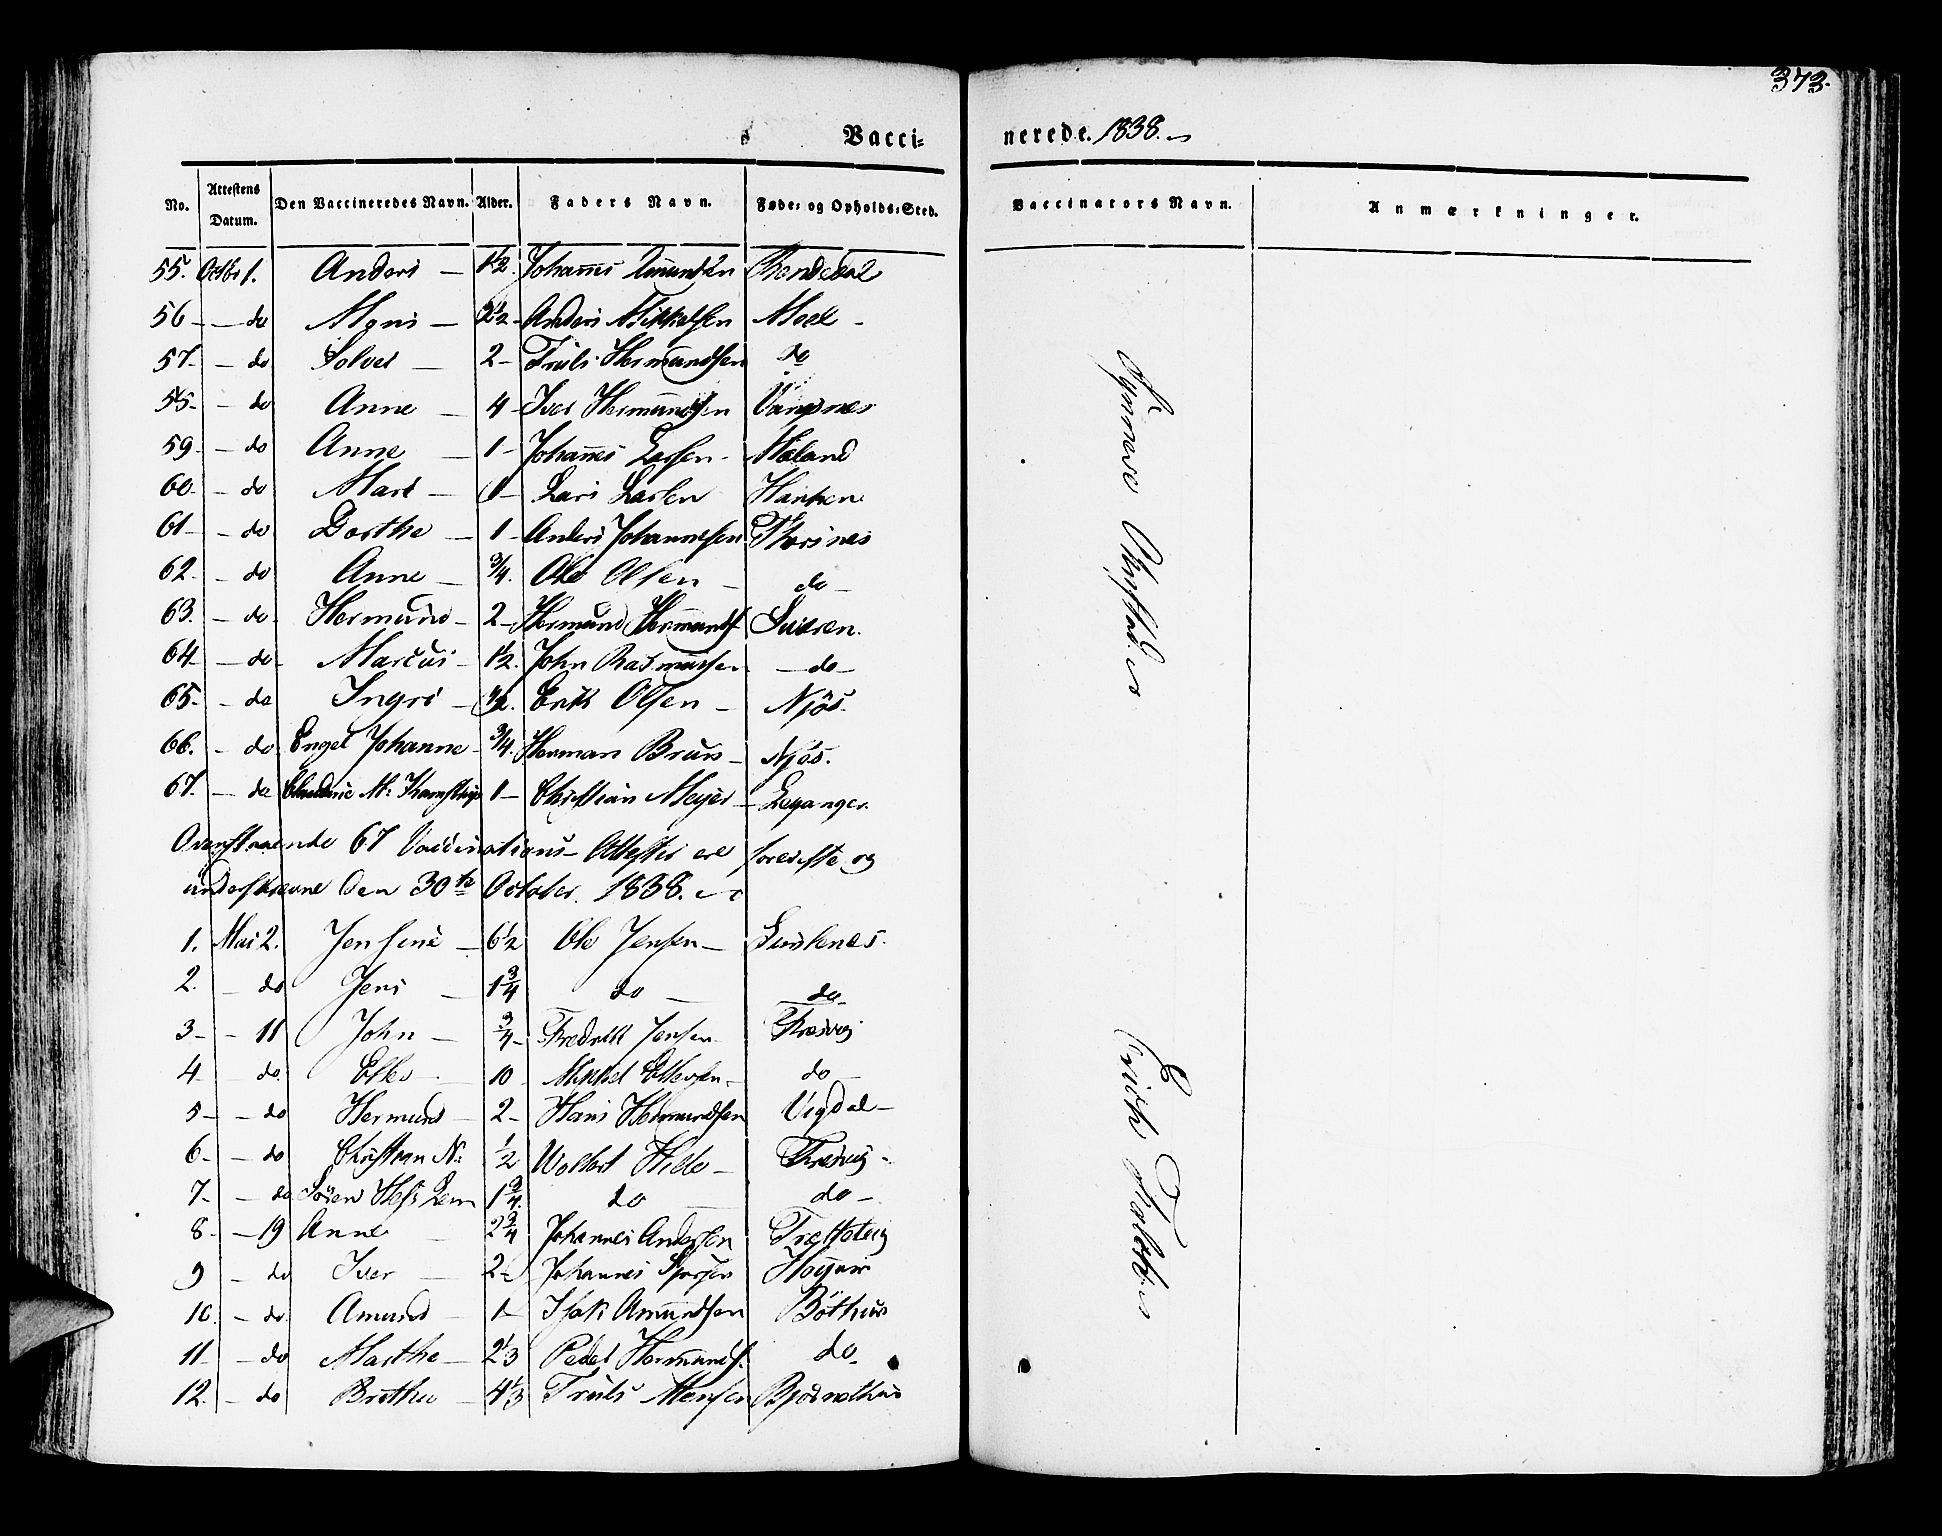 373.
Vaccinerede. 1838.
No. Attestens Datum. Den Vaccineredes Navn. Alder. Faders Navn. Føde- og Opholds-Sted. Vaccinators Navn. Anmærkninger.
55. Octbr 1. Anders - 1½. Johannes Amundsen
56 - do Mons - 2½ - Anders Mikkelsen Moel -
57. - do Solvei - 2 - Truls Hermundsen do
58 - do Anne - 4 - Iver Hermundsen Vangsnes
59 - do Anne - 1 - Johannes Larsen - Mæland
60 - do Mari - Lars Larsen Hanken
61 - do Dorthe - 1 - Anders Johannesen Thorsnes
62. - do Anne - 3/4. Ole Olsen - do -
63. - do Hermund - 2 - Hermund Hermunds
64 - do Marcus - 1½. John Rasmussen - do -
65. - do Ingri - Erik Olsen - Njøs.
66. - do Engel Johanne - 3/4. Herman Brun - Njøs.
67. - do 1 - Christian Meyer - Leganger.
Ovenstaaende 67 Vaccinations-Attester ere foreviste og
underskrevne den 30te October. 1838.
1. Mai 2. Jensine - 6½ Ole Jensen -
2. - do Jens - 1 3/4 do - do -
3 - - 11 John - 3/4 - Fredrik Jensen Fresvig
4 - do Ellev - 10 - Mikkel Ellevsen - do -
5 - - do Hermund - 2 - Hans Hermundsen Vigdal -
6 - - do Christian N: ½ Wollert Hilde - Fresvig -
7 - - do Søren Hess Lem 1 3/4. do do -
8 - - 19 Anne - 2 3/4 Johannes Andersen Trætteteig
9 - do Iver - 2 - Johannes
10. - do Amund - 1 - Isak Amundsen Bøthun
11 - do Marthe - 2 1/3 Peder Hermunds. do -
12. - do Brithe - 4 1/3 Truls Monsen
Synneve
Erich